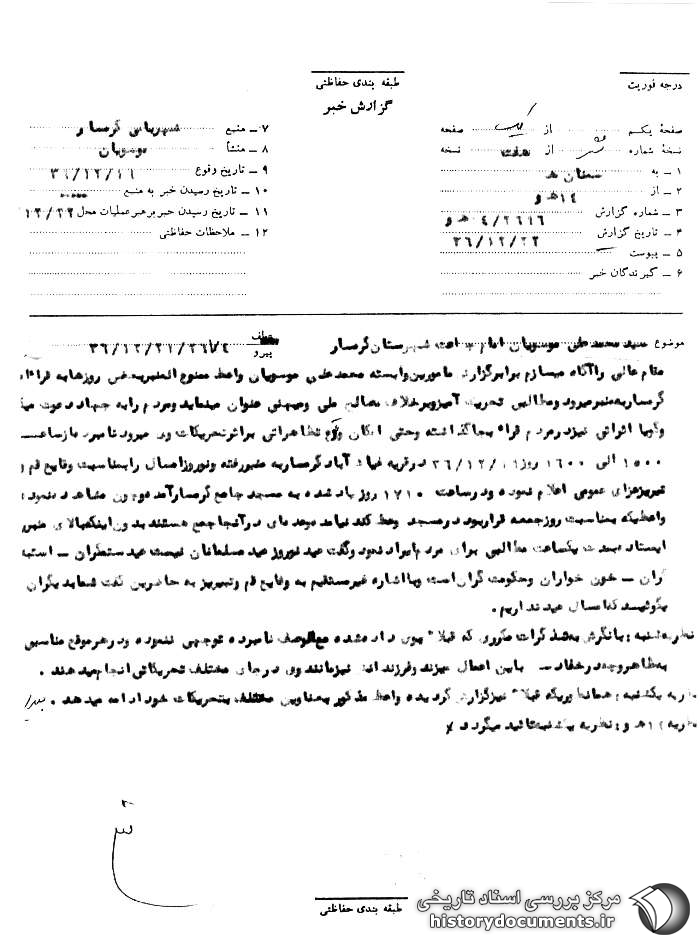 طبقه بندی حفاظتی
گزارش خبر
درجه فوریت
صفحهٔ یکم از یک صفحه
نسخهٔ شماره از هفت نسخه
۱ ـ به سمنان هـ
۲ ـ از ۱۴هـ و
۳ ـ شماره گزارش ۴/۲۶۱۶ هـ و
۴ ـ تاریخ گزارش ۳۶/۱۲/۲۳
۵ ـ پیوست
۶ ـ گیرندگان خبر
۷ ـ منبع شهربانی گرمسار
۸ ـ منشأ موسویان
۹ ـ تاریخ وقوع ۳۶/۱۲/۱۹
۱۰ ـ تاریخ رسیدن خبر به منبع
۱۱ ـ تاریخ رسیدن خبر برهبر عملیات محل ۱۲/۲۲
۱۲ ـ ملاحظات حفاظتی
موضوع سید محمدعلی موسویان امام جماعت شهرستان گرمسار
عطف
پیرو
۳۶/۱۲/۲۱
مقام عالی راآگاه میسازم برابرگزارش مامورین وابسته محمدعلی موسویان واعظ ممنوع المنبر بعض روزهابه قراء
گرمساربه منبرمیرود ومطالبی تحریک آمیزوبرخلاف مصالح ملی ومیهنی عنوان مینماید ومردم رابه جهاد دعوت
وگویا اثراتی نیزدرمردم قراء بجاگذاشته وحتی امکان تظاهراتی براثرتحریکات وی میرود نامبرده ازساعت
۱۵۰۰ الی ۱۶۰۰ روز درقریه آباد گرمساربه منبررفته ونوروزامسال رابمناسبت وقایع قم و
تبریزعزای عمومی اعلام نموده ودرساعت ۱۷۱۰ روز یاد شده به مسجد جامع گرمسارآمده چون مشاهده نمود
واعظیکه بمناسبت روزجمعه قراربود درمسجد وعظ کند نیامده وعده ای درآنجا جمع هستند بدون اینکه بالای منبر
ایستاده بمدت یکساعت مطالبی برای مردم ایراد نمود وگفت عید نوروز عید مسلمانان نیست عید ستمگران ـ
گران ـ خون خواران وحکومت گران است وبااشاره غیرمستقیم به وقایع قم وتبریز به حاضرین گفت شمابدیگران
بگوئید که امسال عید نداریم .
نظریه شنبه : بانگرش به تذکرات مکرری که قبلا" بوی داده شده مع الوصف نامبرده توجهی ننموده ودرهرموقع مناسبی
به ظاهروچه درخفاء به این اعمال میزند وفرزندانش نیزمانند وی درجای مختلف تحریکاتی انجام میدهند .
نظریه یکشنبه : همانطوریکه قبلا" نیزگزارش گردیده واعظ مذکور بعناوین مختلف بتحریکات خود ادامه میدهد .
نظریه ۱۴هـ و : نظریه یکشنبه تائید میگردد
۳
طبقه بندی حفاظتی
مرکز بررسی اسناد تاریخی
historydocuments.ir